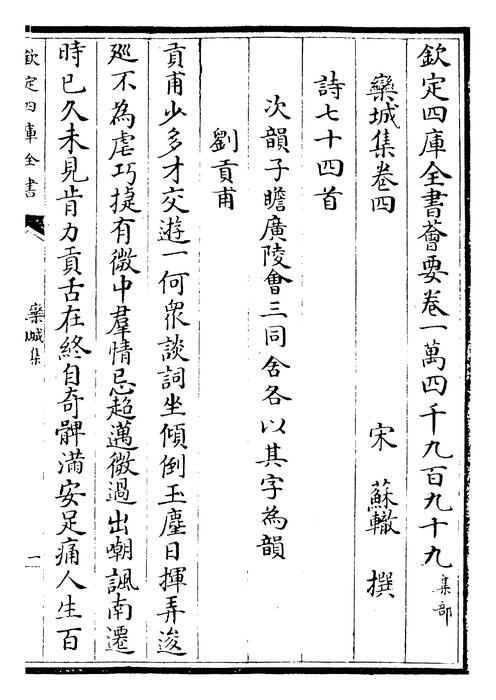 欽定四庫全書薈要卷一萬四千九百九十九 集部
欒城集卷四 宋 蘇轍 撰
詩七十四首
次韻子瞻廣陵會三同舍各以其字為韻
劉貢甫
貢甫少多才交遊一何眾談詞坐傾倒玉麈日揮弄浚
廵不為虐巧㨗有微中羣情忌超邁微過出嘲諷南遷
時已久未見肯力貢舌在終自奇髀滿安足痛人生百
欽定四庫全書
欒城集
一